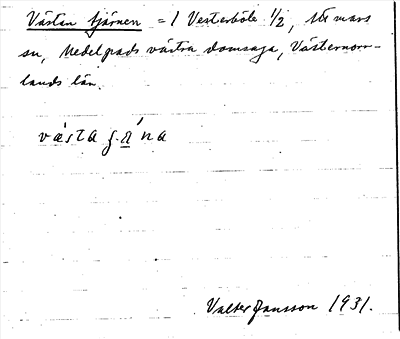 Västan tjärnen = 1 Vesterböle 1/2,
sn, Medelpads västra domsaga, Västernorr-
lands län.
Valter Jansson 1931.